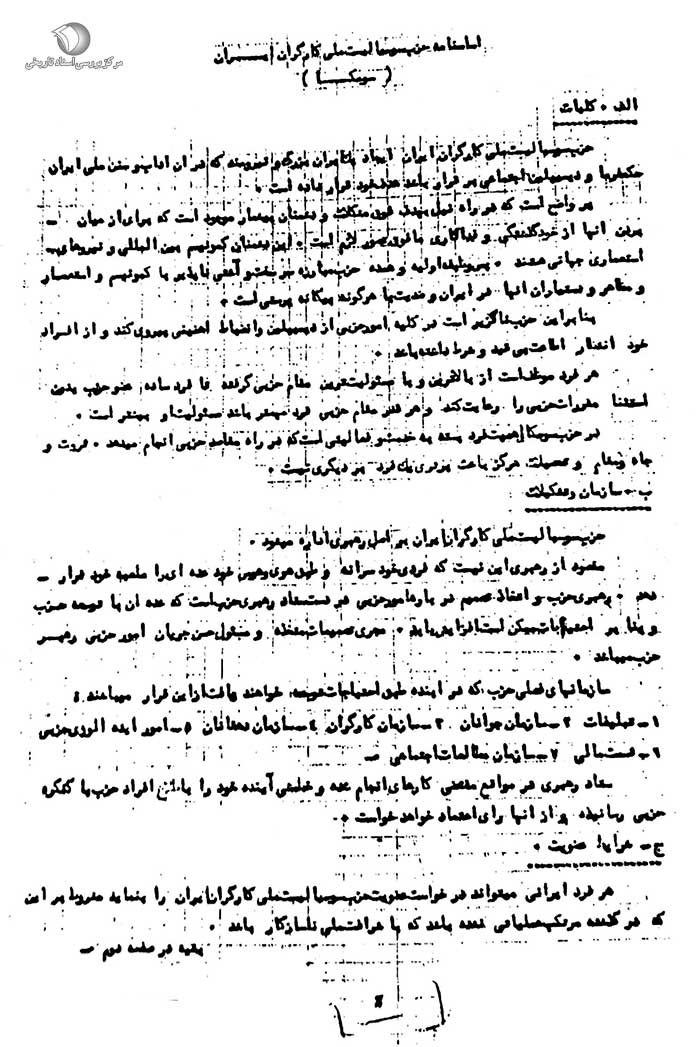 مرکز بررسی اسناد تاریخی
اساسنامه حزب سوسیا لیست ملی کارگران ایـــران
( سومکـــا )
الف ـ کلیات
حزب سوسیا لیست ملی کارگران ایران ایجاد یک ایران بزرگ و نیرومند که در آن آداب و سنن ملی ایران
حکمفرما و دیسپلین اجتماعی بر قرار باشد هدف خود قرار داده است ۰
پر واضح است که در راه نیل بهدف فوق مشکلات و دشمنان بیشمار موجود است که برای از میان ـ
بردن آنها از خود گذشتگی و فداکاری مافوق تصور لازم است ۰ این دشمنان کمونیسم بین المللی و نیروهای ـ
استعماری جهانی هستند ۰ پس وظیفه اولیه و عمده حزب مبارزه سرسخت و آشتی ناپذیر با کمونیسم و استعمار
و مظاهر و دستیاران آنها در ایران و ضدیت با هرگونه بیگانه پرستی است ۰
بنا براین حزب ناگزیر است در کلیه امور حزبی از دیسپلین و انضباط آهنینی پیروی کند و از افراد
خود انتظار اطاعت بی قید و شرط داشته باشد ۰
هر فرد موظف است از بالاترین و با مسئولیت ترین مقام حزبی گرفته تا فرد ساده عضو حزب بدون
استثنا مقررات حزبی را رعایت کند و هر قدر مقام حزبی فرد مهمتر باشد مسئولیت او بیشتر است ۰
در حزب سومکا اهمیت فرد بسته به خدمت و فعالیتی است که در راه مقاصد حزبی انجام میدهد ۰ ثروت و
جاه و مقام و تحصیلات هرگز باعث برتری یک فرد بر دیگری نیست ۰
ب ـ سازمان و تشکیلات
حزب سوسیا لیست ملی کارگران ایران بر اصل رهبری اداره میشود ۰
مقصود از رهبری این نیست که فردی خود سرانه و طبق هوی و هوس خود عده ای را ملعبه خود قرار ـ
دهد ۰ رهبری حزب و اتخاذ تصمیم در باره امور حزبی در دست ستاد رهبری حزب است که عده آن با توسعه حزب
و بنا بر احتیاجات ممکن است افزایش یابد ۰ مجری تصمیمات متخذه و مسئول حسن جریان امور حزبی رهبر
حزب میباشد ۰
سازمانهای فعلی حزب که در آینده طبق احتیاجات توسعه خواهند یافت از این قرار میباشند :
۱ـ تبلیغات ۲ ـ سازمان جوانان ۳ ـ سازمان کارگران ٤ ـ سازمان دهقانان ٥ ـ امور ایده الوژی حزبی
٦ ـ قسمت مالی ۷ ـ سازمان مطالعات اجتماعی ـ
ستاد رهبری در مواقع مقتضی کارهای انجام شده و خط مشی آینده خود را باطلاع افراد حزب یا کنگره
حزبی رسانیده و از آنها رای اعتماد خواهد خواست ۰
ج ـ شرایط عضویت ۰
هر فرد ایرانی میتواند در خواست عضویت حزب سوسیا لیست ملی کارگران ایران را بنماید مشروط بر این
که در گذشته مرتکب عملیاتی نشده باشد که با شرافت ملی ناسازگار باشد ۰
بقیه در صفحه دوم ـ